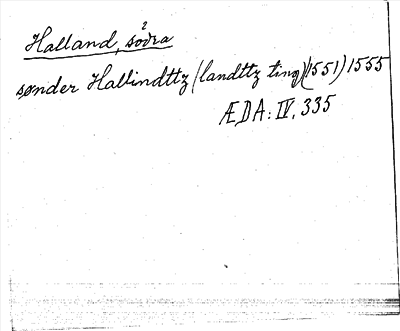 2
Halland, södra
sønder Hallindttz (landttz ting) (1551) 1555
ÆDA: IV, 335